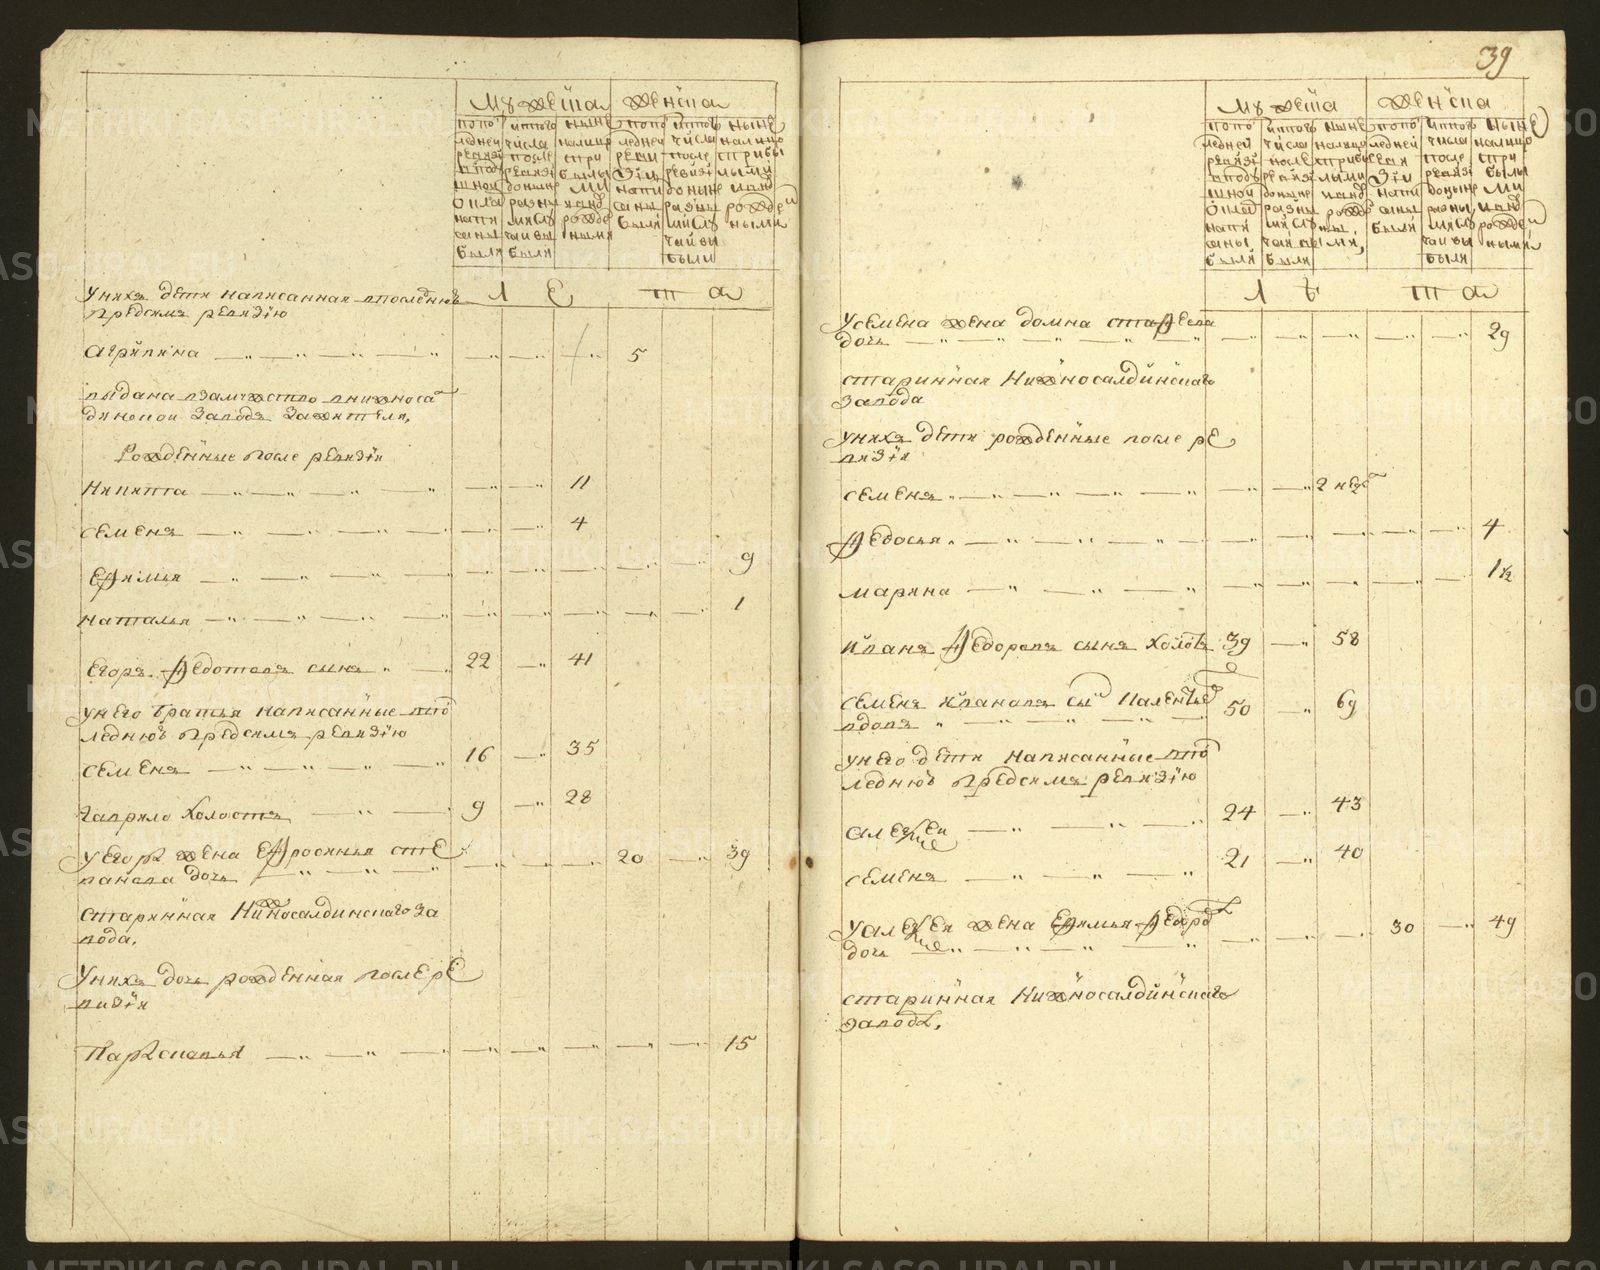 Мужеска
женска
попо ледней ревизiи вподъ шной окла напи саны были
изтого числа после ревизiи доныне разны мислу чаи вы были
ныне налицо стри былы ми ианд рожде ными
попо ледней реви зiи напи саны были
изтого числа после ревизiи доныне разны мислу чаи вы были
ныне налицо стрибы лыми ианд рожден ными
Л Е Т А
Унихъ дети написанная впоследнюю
предсимъ ревизiю
Агрипина 5
выдана взамужство внижноса
динской заводъ Зажителя,
Рожденные после ревизiи
Никита 11
Семенъ 4
Ефимья 9
Наталья 1
Егоръ Федотовъ сынъ 22 41
унего братья написанные впо
леднюю предсимъ ревизiю
Семенъ 16 35
Гаврило холостъ 9 28
У Егора жена Ефросинья сте
панова дочь 20 39
старинная Нижносалдинскаго за
вода.
Унихъ дочь рожденная послере
визiи
Парасковья 15
39
Мужеска
женска
попо ледней ревизiи вподъ шной оклад напи саны были
изтого числа после ревизiи доныне разны мислу чаи вы были
ныне налицо стрибы лыми ианд рожд ны ми,
попо ледней реви зiи напи саны были
изтого числа после ревизiи доныне разны мислу чаи вы были
ныне налицо стри былы ми ианд рожден ными
Л Е Т А
Усемена жена домна стафеева
дочь 29
старинная Нижносалдинскаго
завода
Унихъ дети рожденные после ре
визiи
Семенъ 2 нед
Федосья 4
Марина 1½
Иванъ Федоровъ сынъ холостъ 39 58
Семенъ Ивановъ сы Паленъ
вдовъ 50 69
унего дети написанные впо
леднюю предсимъ ревизiю
Алексеи 24 43
Семенъ 21 40
Уалексея жена Ефимья Федоро
дочь 30 49
старинная Нижносалдинскаго
завода,
METRIKI.GASO-URAL.RU